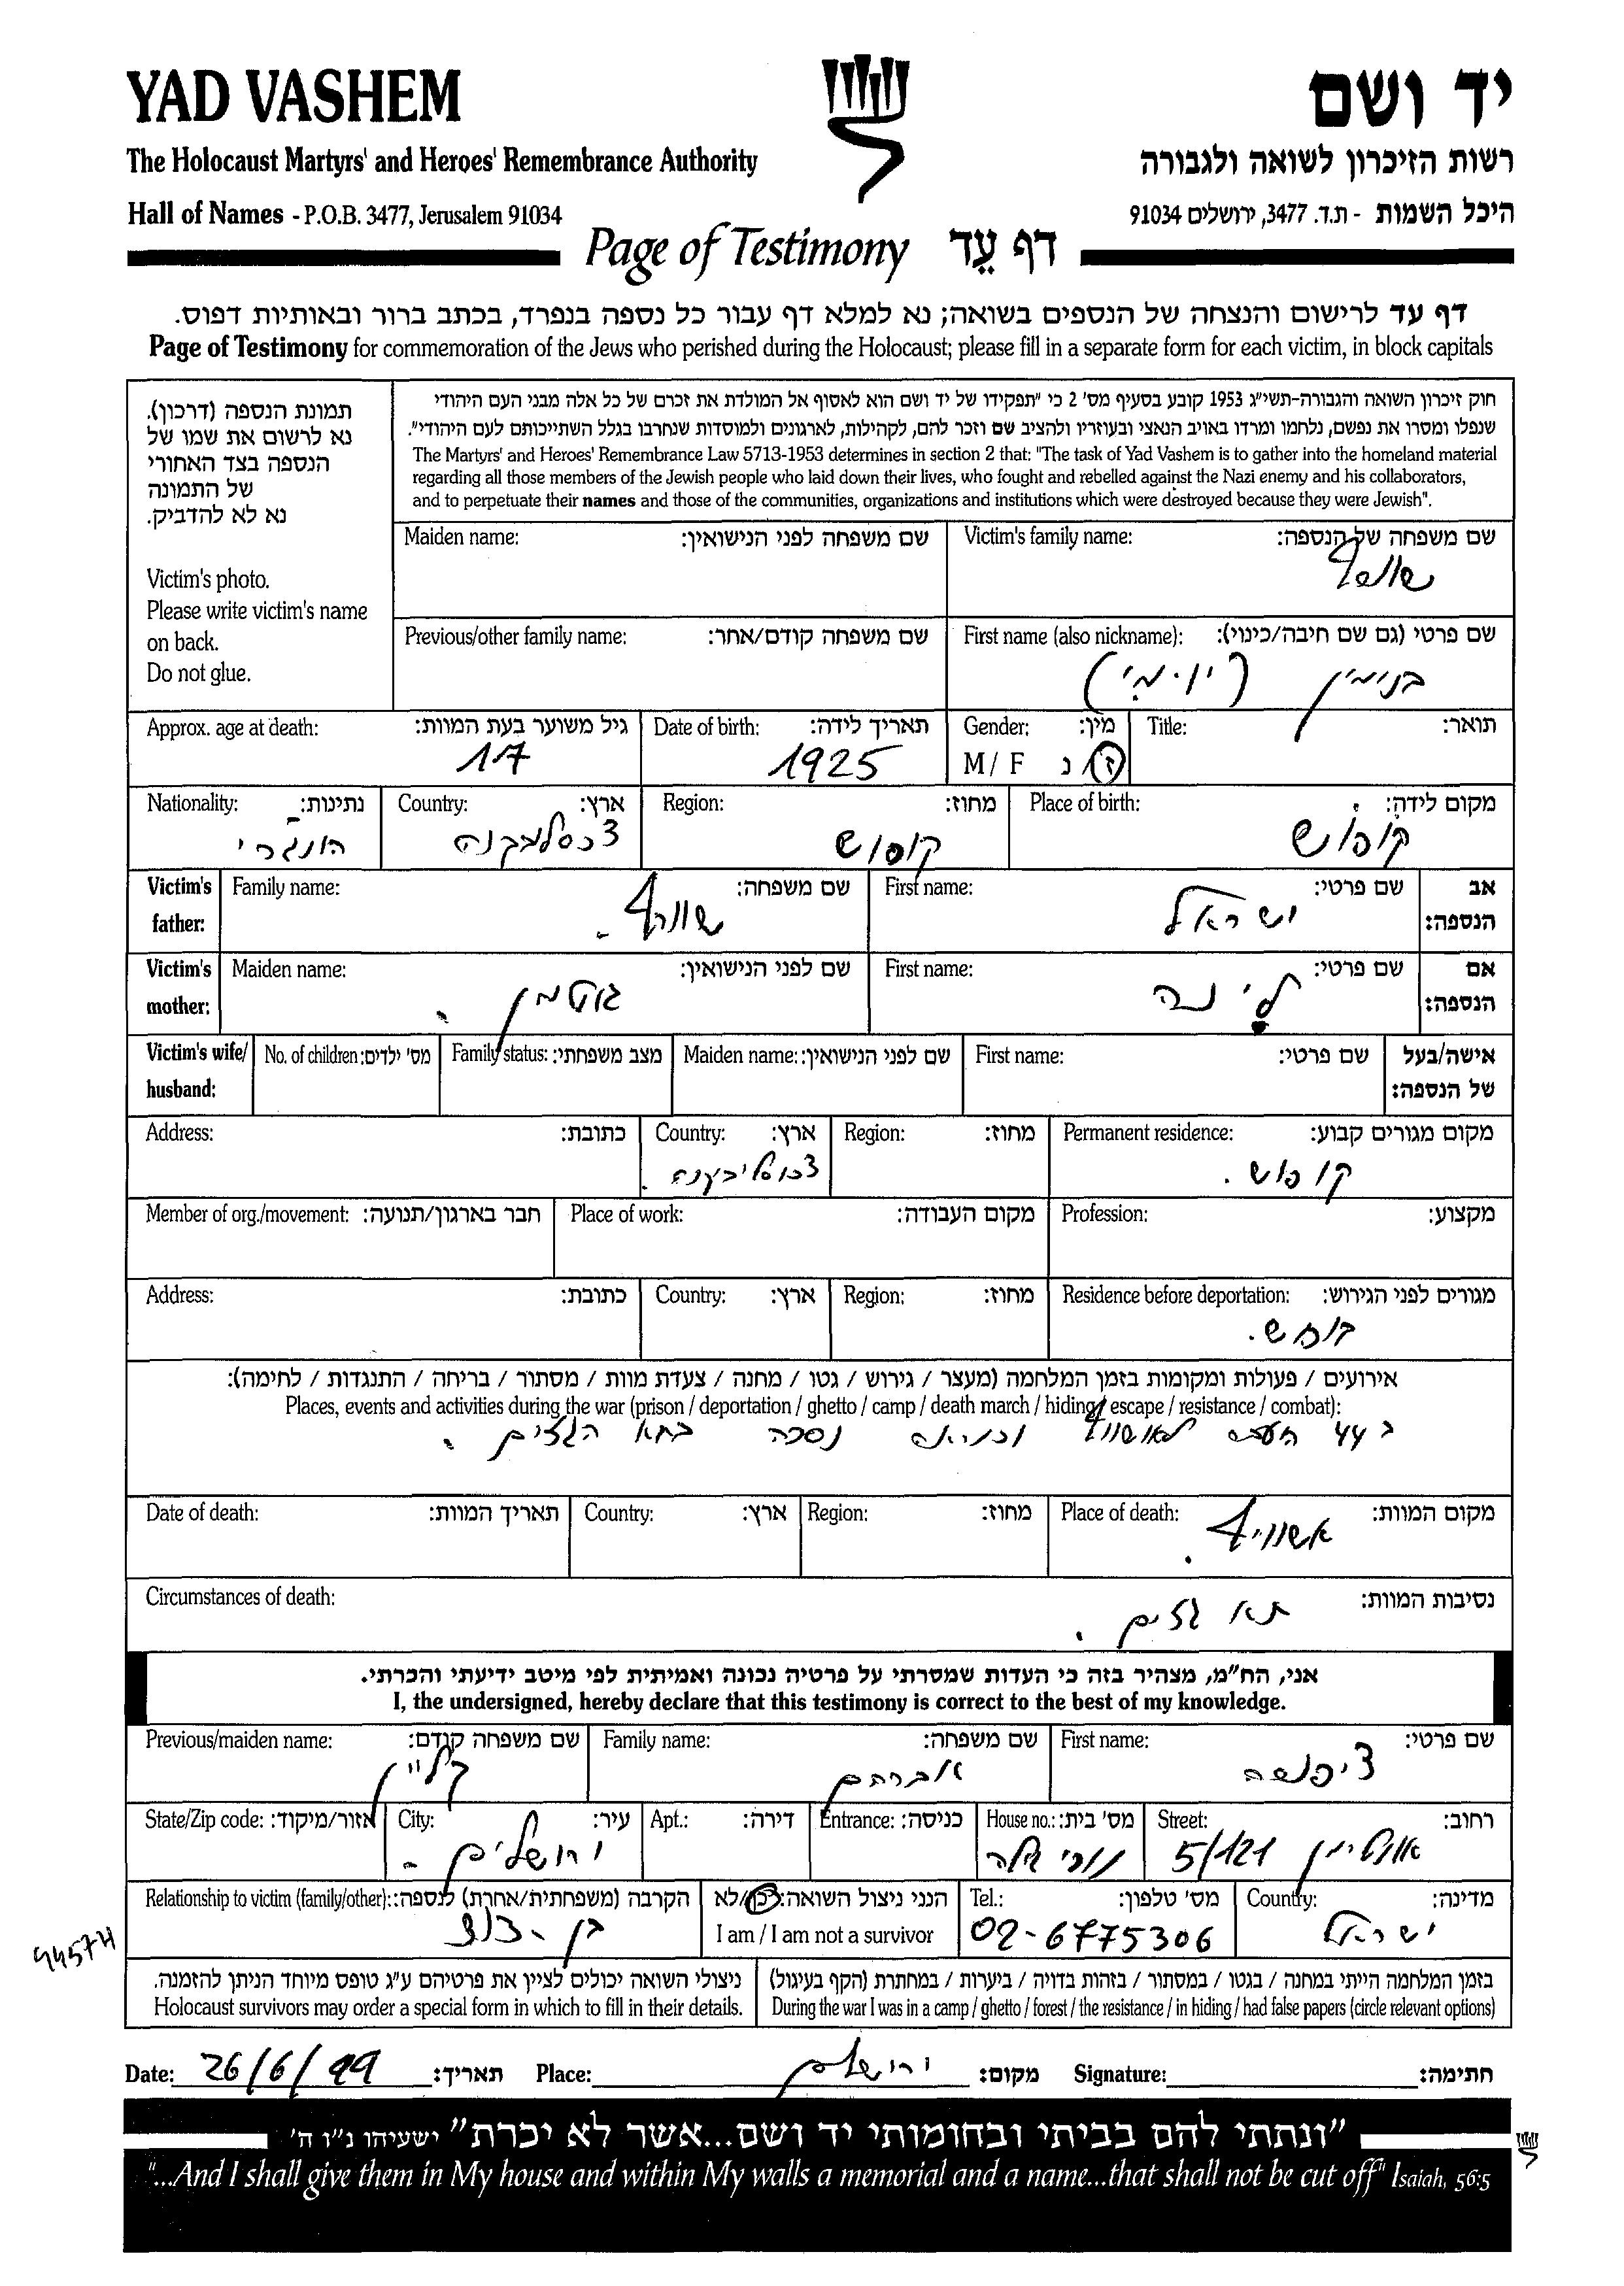 YAD VASHEM
יד ושם
The Holocaust Martyrs' and Heroes' Remembrance Authority
רשות הזיכרון לשואה ולגבורה
Hall of Names - P.O.B. 3477, Jerusalem 91034
היכל השמות - ת.ד. 3477, ירושלים 91034
Page of Testimony דף עֵד
דף עד לרישום והנצחה של הנספים בשואה; נא למלא דף עבור כל נספה בנפרד, בכתב ברור ובאותיות דפוס.
Page of Testimony for commemoration of the Jews who perished during the Holocaust; please fill in a separate form for each victim, in block capitals
תמונת הנספה (דרכון).
נא לרשום את שמו של
הנספה בצד האחורי
של התמונה
נא לא להדביק.
Victim's photo.
Please write victim's name
on back.
Do not glue.
חוק זיכרון השואה והגבורה-תשי"ג 1953 קובע בסעיף מס' 2 כי "תפקידו של יד ושם הוא לאסוף אל המולדת את זכרם של כל אלה מבני העם היהודי
שנפלו ומסרו את נפשם, נלחמו ומרדו באויב הנאצי ובעוזריו ולהציב שם וזכר להם, לקהילות, לארגונים ולמוסדות שנחרבו בגלל השתייכותם לעם היהודי".
The Martyrs' and Heroes' Remembrance Law 5713-1953 determines in section 2 that: "The task of Yad Vashem is to gather into the homeland material
regarding all those members of the Jewish people who laid down their lives, who fought and rebelled against the Nazi enemy and his collaborators,
and to perpetuate their names and those of the communities, organizations and institutions which were destroyed because they were Jewish".
שם משפחה של הנספה: Victim's family name:
שם משפחה לפני הנישואין: Maiden name:
שם פרטי (גם שם חיבה/כינוי): First name (also nickname):
בנימין
שם משפחה קודם/אחר: Previous/other family name:
תואר: Title:
מין: Gender:
ז / נ M / F
תאריך לידה: Date of birth:
1925
גיל משוער בעת המוות: Approx. age at death:
17
מקום לידה: Place of birth:
מחוז: Region:
ארץ: Country:
נתינות: Nationality:
הונגרי
אב הנספה: Victim's father:
שם פרטי: First name:
ישראל
שם משפחה: Family name:
אם הנספה: Victim's mother:
שם פרטי: First name:
שם לפני הנישואין: Maiden name:
גוטמן
אישה/בעל של הנספה: Victim's wife/ husband:
שם פרטי: First name:
שם לפני הנישואין: Maiden name:
מצב משפחתי: Family status:
מס' ילדים: No. of children:
מקום מגורים קבוע: Permanent residence:
מחוז: Region:
ארץ: Country:
כתובת: Address:
מקצוע: Profession:
מקום העבודה: Place of work:
חבר בארגון/תנועה: Member of org./movement:
מגורים לפני הגירוש: Residence before deportation:
מחוז: Region:
ארץ: Country:
כתובת: Address:
אירועים / פעולות ומקומות בזמן המלחמה (מעצר / גירוש / גטו / מחנה / צעדת מוות / מסתור / בריחה / התנגדות / לחימה):
Places, events and activities during the war (prison / deportation / ghetto / camp / death march / hiding / escape / resistance / combat):
ב 44 נספה בתא הגזים.
מקום המוות: Place of death:
אשוויץ.
מחוז: Region:
ארץ: Country:
תאריך המוות: Date of death:
נסיבות המוות: Circumstances of death:
תא גזים.
אני, הח"מ, מצהיר בזה כי העדות שמסרתי על פרטיה נכונה ואמיתית לפי מיטב ידיעתי והכרתי.
I, the undersigned, hereby declare that this testimony is correct to the best of my knowledge.
שם פרטי: First name:
שם משפחה: Family name:
אברהם
שם משפחה קודם: Previous/maiden name:
קליין
רחוב: Street:
5/121
מס' בית: House no.:
כניסה: Entrance:
דירה: Apt.:
עיר: City:
ירושלים -
אזור/מיקוד: State/Zip code:
מדינה: Country:
ישראל
מס' טלפון: Tel.:
02-6775306
הנני ניצול השואה: כן/לא
I am / I am not a survivor
הקרבה (משפחתית/אחרת) לנספה: Relationship to victim (family/other):
בן - דוד
94574
בזמן המלחמה הייתי במחנה / בגטו / במסתור / בזהות בדויה / ביערות / במחתרת (הקף בעיגול)
During the war I was in a camp / ghetto / forest / the resistance / in hiding / had false papers (circle relevant options)
ניצולי השואה יכולים לציין את פרטיהם ע"ג טופס מיוחד הניתן להזמנה.
Holocaust survivors may order a special form in which to fill in their details.
חתימה: Signature:
מקום: ירושלים Place:
תאריך: 26/6/99 Date:
"ונתתי להם בביתי ובחומותי יד ושם...אשר לא יכרת" ישעיהו נ"ו ה'
"...And I shall give them in My house and within My walls a memorial and a name...that shall not be cut off" Isaiah, 56:5